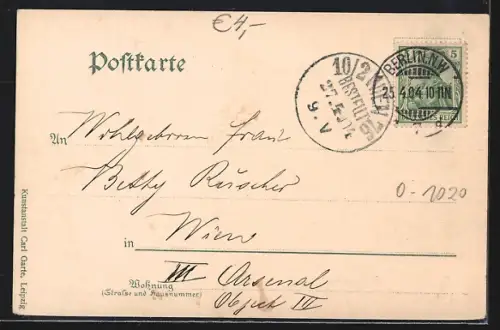 €4,-
Postkarte
5
BERLIN. N.W.
25.4.04.10-11N.
10/2 WIEN
BESTELLT
9.V
An Wohlgeboren Frau
Betty Rüscher
0-1020
in Wien
Wohnung
(Straße und Hausnummer)
III Arsenal
Object IV
Kunstanstalt Carl Garte, Leipzig